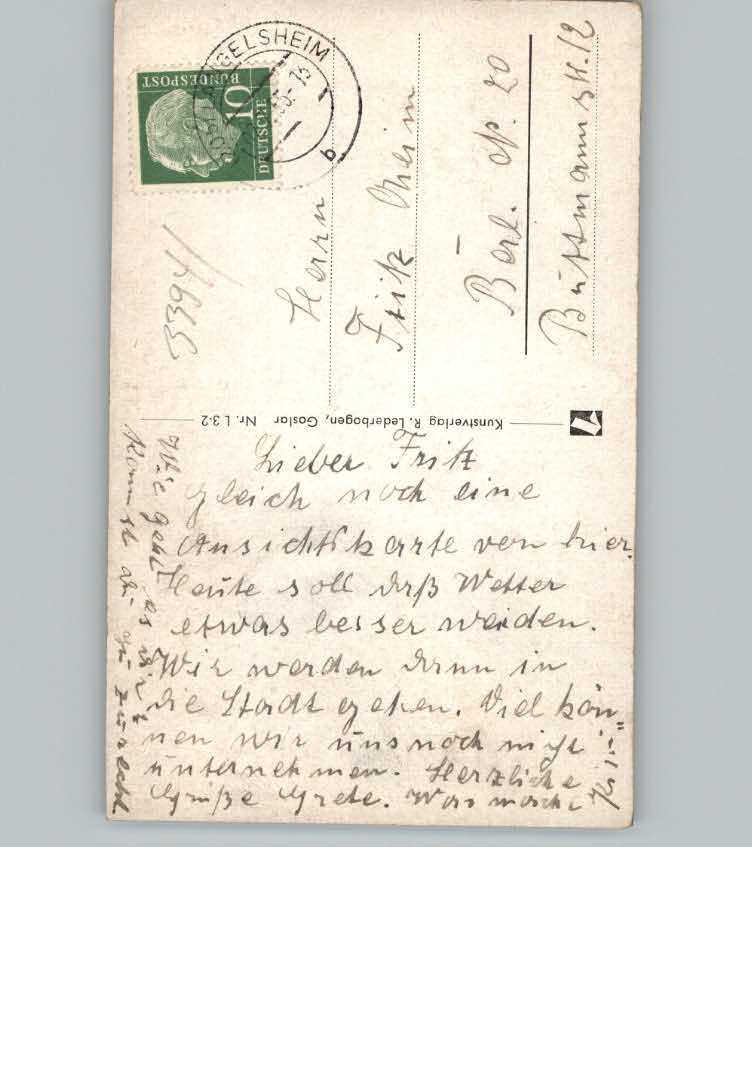 LANGELSHEIM
b
DEUTSCHE
BUNDESPOST
10
3394/
Herrn
Fritz Rheim
Berl. N. 20
Büttmannstr. 12
Kunstverlag R. Lederbogen, Goslar Nr. L 3-2
Lieber Fritz
gleich noch eine
Ansichtskarte von hier.
Heute soll daß Wetter
etwas besser werden.
Wir werden dann in
die Stadt gehen. Viel kön=
nen wir uns noch nicht
unternehmen. Herzliche
Grüße Grete. Was macht
Wie geht es dir
kommst du gu zurecht